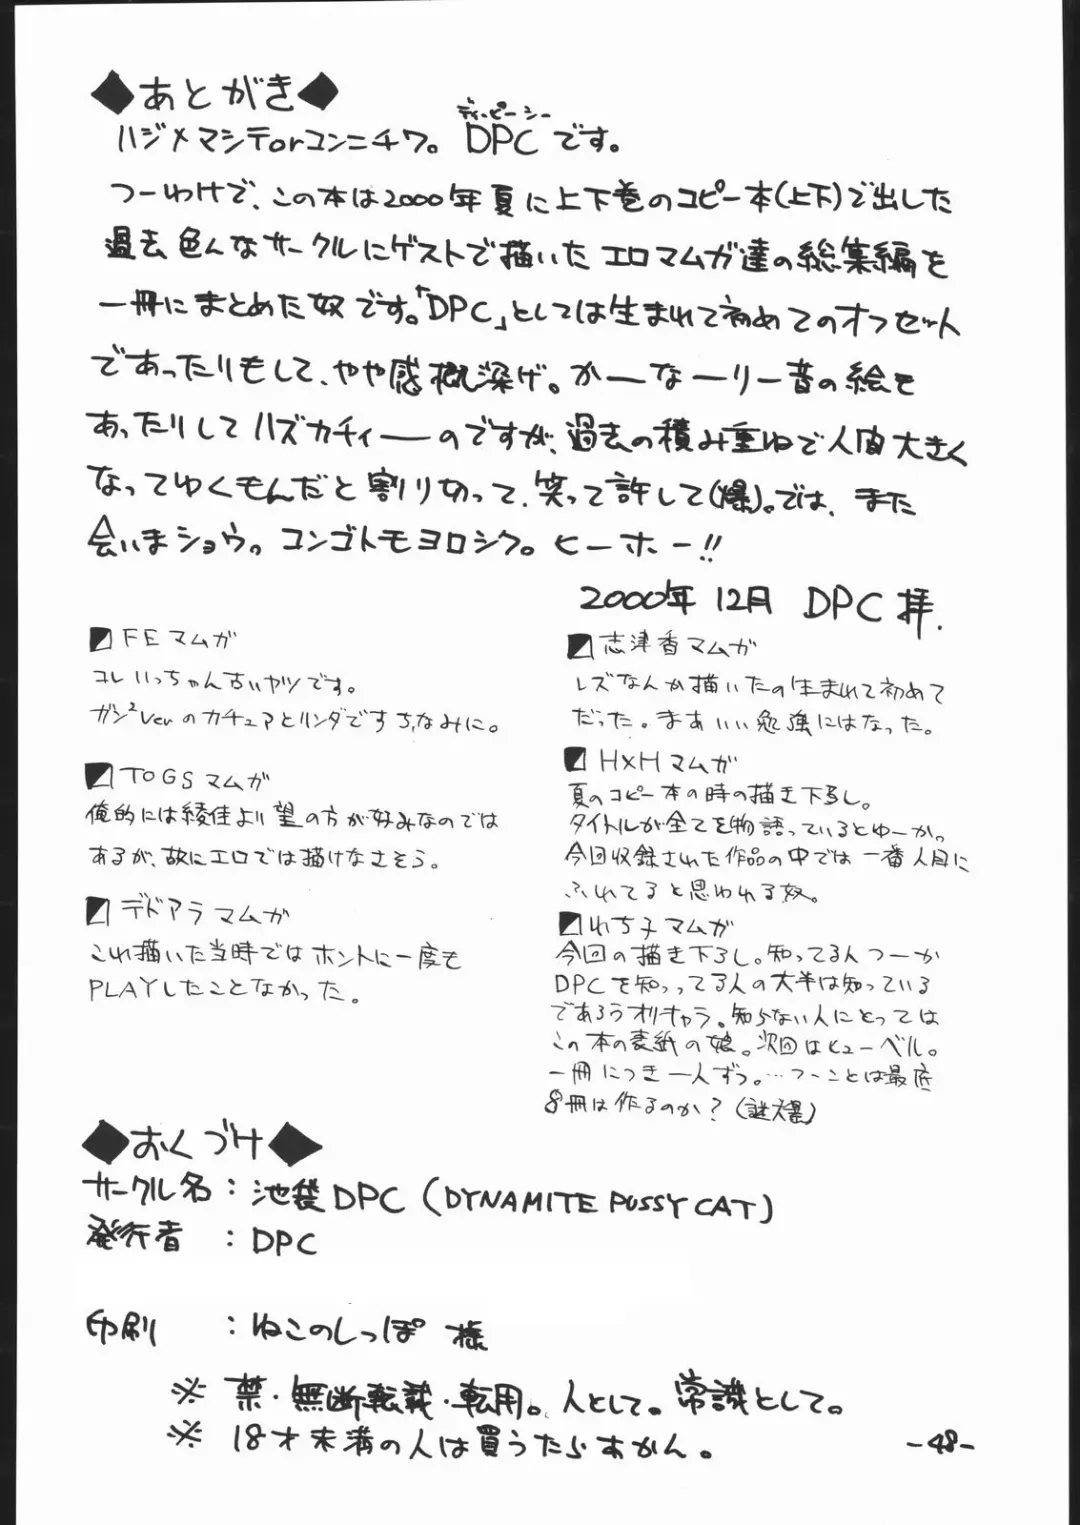 ◆あとがき◆
ハジメマシテorコンニチワ。DPCです。
ディーピーシー
つーわけで、この本は2000年夏に上下巻のコピー本(上下)で出した
過去色んなサークルにゲストで描いたエロマムガ達の総集編を
一冊にまとめた奴です。「DPC」としては生まれて初めてのオフセット
であったりもして、やや感概深げ。かーなーり一昔の絵も
あったりしてハズカチィーのですが、過去の積み重ねで人間大きく
なってゆくもんだと割り切って、笑って許して(爆)。では、また
会いまショウ。コンゴトモヨロシク。ヒーホー!!
2000年12月 DPC 拝.
FEマムガ
コレいっちゃん古いヤツです。
ガンガンVerのカチュアとリンダですち,なみに。
TOGSマムガ
俺的には綾佳より望の方が好みなのでは
あるが、故にエロでは描けなさそう。
デドアラマムガ
これ描いた当時ではホントに一度も
PLAYしたことなかった。
志津香マムガ
レズなんか描いたの生まれて初めて
だった。まあいい勉強にはなった。
H×Hマムガ
夏のコピー本の時の描き下ろし。
タイトルが全てを物語っているとゆーか。
今回収録された作品の中では一番人目に
ふれてると思われる奴。
れち子マムガ
今回の描き下ろし。知ってる人つーか
DPCを知ってる人の大半は知っている
であろうオリキャラ。知らない人にとっては
この本の表紙の娘。次回はヒューベル。
一冊につき一人ずつ。…つーことは最底
8冊は作るのか?(謎爆)
◆おくづけ◆
サークル名:池袋DPC(DYNAMITE PUSSY CAT)
発行者:DPC
印刷:ねこのしっぽ 様
※禁・無断転載・転用。人として。常識として。
※18才未満の人は買うたらあかん。
-48-